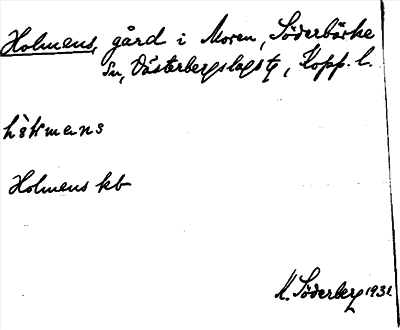 Holmens, gård i Moren, Söderbärke
sn, Västerbergslags tg, Kopp. l.
Holmens kb
K. Söderberg 1931